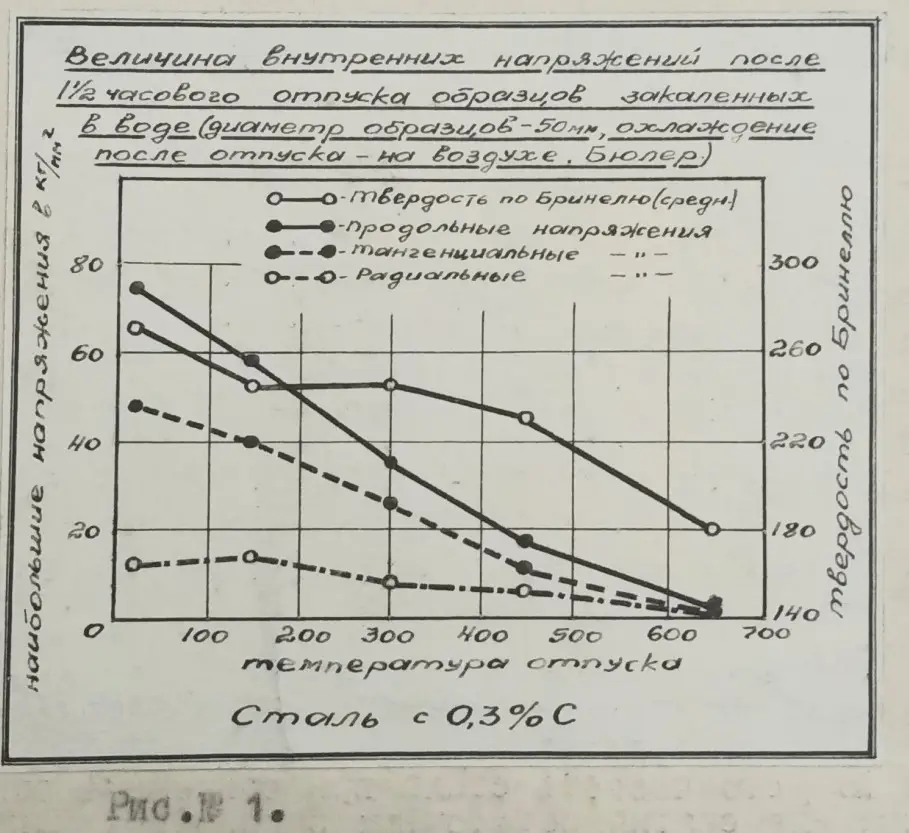 Величина внутренних напряжений после
1½ часового отпуска образцов закаленных
в воде (диаметр образцов - 50мм, охлаждение
после отпуска - на воздухе. Бюлер)
наибольшие напряжения в кг/мм²
твердость по Бринеллю
- Твердость по Бринелю (средн.)
- Продольные напряжения
- Тангенциальные — " —
- Радиальные — " —
80 300
60 260
40 220
20 180
140
0 100 200 300 400 500 600 700
температура отпуска
Сталь с 0,3% С
Рис.№ 1.